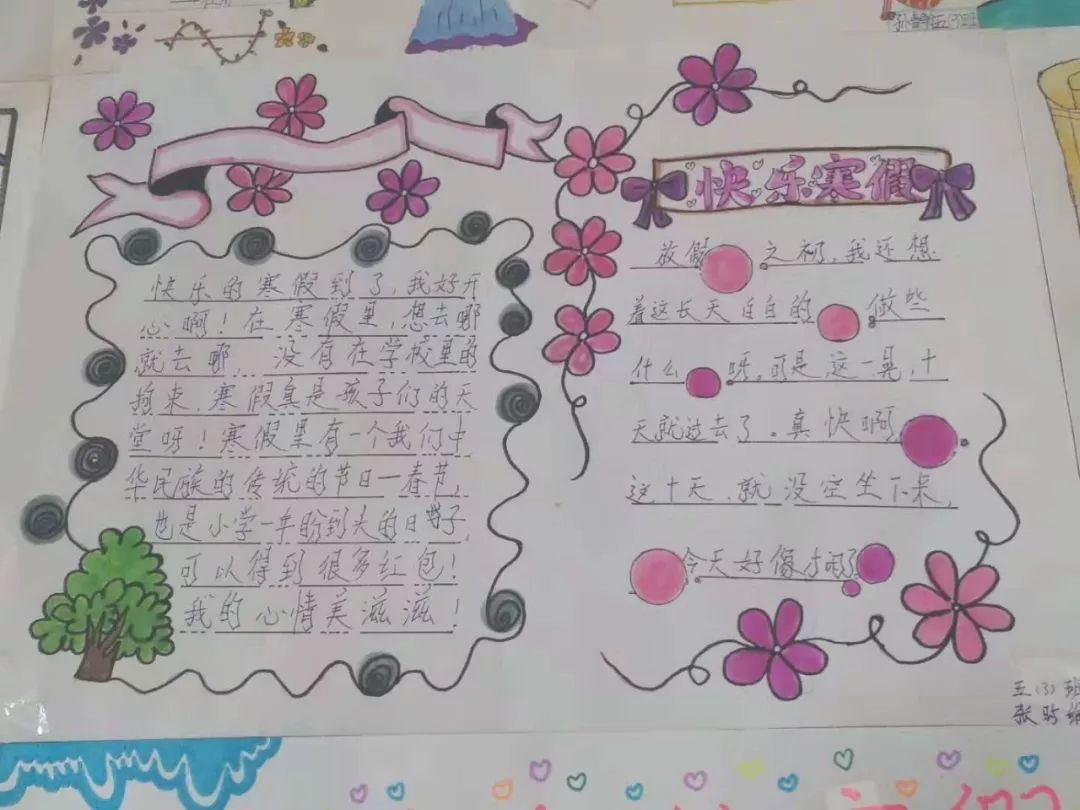 快乐的寒假到了,我好开
心啊!在寒假里,想去哪
就去哪,没有在学校里的
拘束,寒假真是孩子们的天
堂呀!寒假里有一个我们中
华民族的传统的节日一春节,
也是小学一年盼到头的日子,
可以得到很多红包!
我的心情美滋滋!
快乐寒假
放假之初,我还想
着这长天白白的做些
什么呀。可是,这一晃,十
天就过去了。真快啊
这十天,就没空坐下来,
今天好像才闲了
五(3)班
张